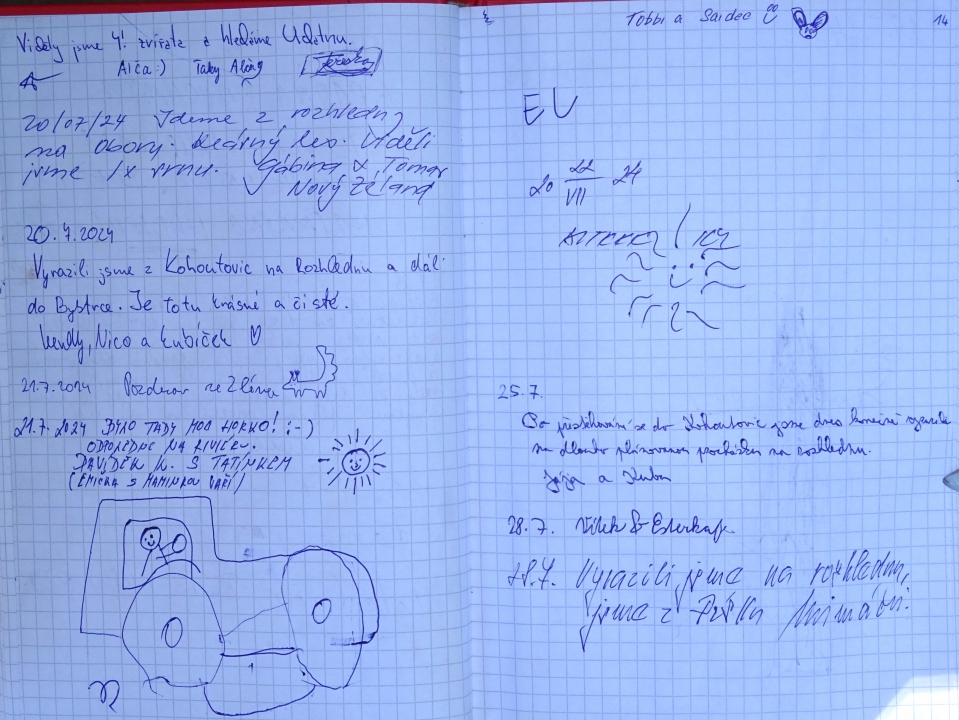 Viděly jsme 4! zvířata a hledáme
Alča:) Taky
20/07/24 Jdeme z rozhledny
na obory. Krásný les. Viděli
jsme 1x srnu. Gábina & Tomas
Nový Zéland
20.7.2024
Vyrazili jsme z Kohoutovic na Rozhlednu a dál
do Bystrce. Je totu krásné a čisté.
Wendy, Nico a Lubíček
21.7.2024 Pozdrav ze Zlína
21.7.2024 BYLO TADY MOC HORKO! :-)
ODPOLEDNE NA RIVIÉRU.
DAVÍDEK K. S TATÍNKEM
(EMIČKA S MAMINKOU VAŘÍ)
Tobbi a Saidee
14
EU
20 22/VII 24
25.7.
Po přistěhování se do Kohoutovic jsme dnes konečně vyrazili
na dlouho plánovanou procházku na rozhlednu.
Jája a Kuba
28.7. Vilek &
28.7. Vyrazili jsme na rozhlednu,
jsme z